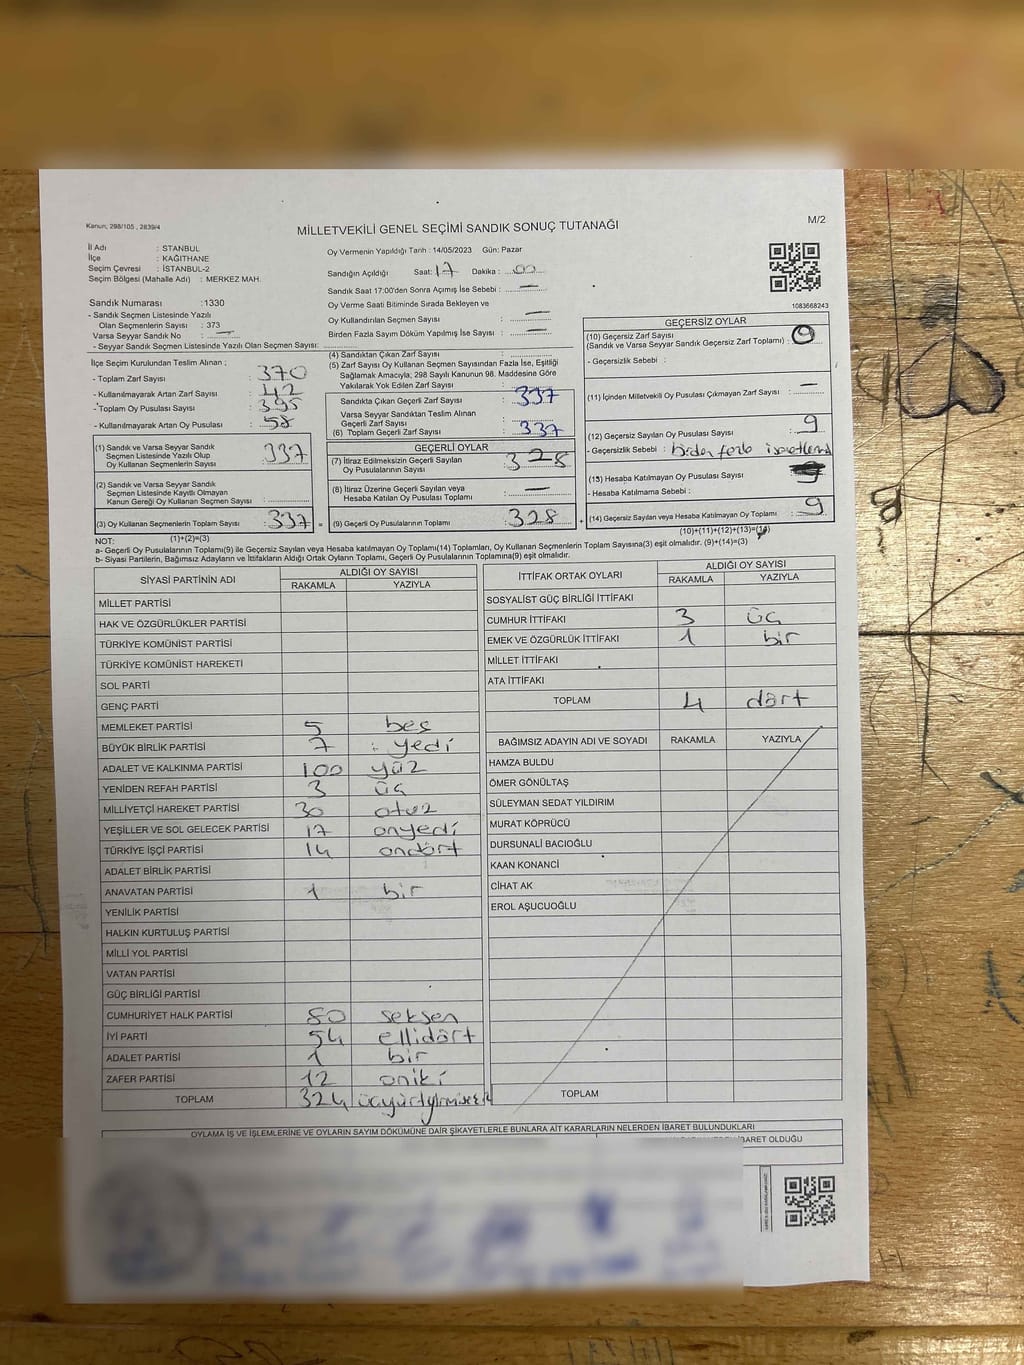 Kanun, 298/105 , 2839/4
MİLLETVEKİLİ GENEL SEÇİMİ SANDIK SONUÇ TUTANAĞI
M/2
İl Adı : STANBUL
İlçe : KAĞITHANE
Seçim Çevresi : İSTANBUL-2
Seçim Bölgesi (Mahalle Adı) : MERKEZ MAH.
Sandık Numarası :1330
- Sandık Seçmen Listesinde Yazılı
Olan Seçmenlerin Sayısı : 373
Varsa Seyyar Sandık No : —
- Seyyar Sandık Seçmen Listesinde Yazılı Olan Seçmen Sayısı:
Oy Vermenin Yapıldığı Tarih : 14/05/2023 Gün: Pazar
Sandığın Açıldığı Saat: 17 Dakika : 00
Sandık Saat 17:00'den Sonra Açımış İse Sebebi : —
Oy Verme Saati Bitiminde Sırada Bekleyen ve
Oy Kullandırılan Seçmen Sayısı : —
Birden Fazla Sayım Döküm Yapılmış İse Sayısı : —
1083668243
İlçe Seçim Kurulundan Teslim Alınan ;
- Toplam Zarf Sayısı : 370
- Kullanılmayarak Artan Zarf Sayısı : 42
- Toplam Oy Pusulası Sayısı : 395
- Kullanılmayarak Artan Oy Pusulası : 58
(1) Sandık ve Varsa Seyyar Sandık
Seçmen Listesinde Yazılı Olup
Oy Kullanan Seçmenlerin Sayısı : 337
(2) Sandık ve Varsa Seyyar Sandık
Seçmen Listesinde Kayıtlı Olmayan
Kanun Gereği Oy Kullanan Seçmen Sayısı :
(3) Oy Kullanan Seçmenlerin Toplam Sayısı : 337 =
(4) Sandıktan Çıkan Zarf Sayısı :
(5) Zarf Sayısı Oy Kullanan Seçmen Sayısından Fazla İse, Eşitliği
Sağlamak Amacıyla; 298 Sayılı Kanunun 98. Maddesine Göre
Yakılarak Yok Edilen Zarf Sayısı :
Sandıkta Çıkan Geçerli Zarf Sayısı : 337
Varsa Seyyar Sandıktan Teslim Alınan
Geçerli Zarf Sayısı :
(6) Toplam Geçerli Zarf Sayısı : 337
GEÇERLİ OYLAR
(7) İtiraz Edilmeksizin Geçerli Sayılan
Oy Pusulalarının Sayısı : 328
(8) İtiraz Üzerine Geçerli Sayılan veya
Hesaba Katılan Oy Pusulası Toplamı : —
(9) Geçerli Oy Pusulalarının Toplamı : 328 +
GEÇERSİZ OYLAR
(10) Geçersiz Zarf Sayısı
(Sandık ve Varsa Seyyar Sandık Geçersiz Zarf Toplamı) :
- Geçersizlik Sebebi :
(11) İçinden Milletvekili Oy Pusulası Çıkmayan Zarf Sayısı : —
(12) Geçersiz Sayılan Oy Pusulası Sayısı : 9
- Geçersizlik Sebebi : birden fazla
(13) Hesaba Katılmayan Oy Pusulası Sayısı :
- Hesaba Katılmama Sebebi :
(14) Geçersiz Sayılan veya Hesaba Katılmayan Oy Toplamı : 9
NOT: (1)+(2)=(3)
(10)+(11)+(12)+(13)=(14)
a- Geçerli Oy Pusulalarının Toplamı(9) ile Geçersiz Sayılan veya Hesaba katılmayan Oy Toplamı(14) Toplamları, Oy Kullanan Seçmenlerin Toplam Sayısına(3) eşit olmalıdır. (9)+(14)=(3)
b- Siyasi Partilerin, Bağımsız Adayların ve İttifakların Aldığı Ortak Oyların Toplamı, Geçerli Oy Pusulalarının Toplamına(9) eşit olmalıdır.
SİYASİ PARTİNİN ADI ALDIĞI OY SAYISI
RAKAMLA YAZIYLA
MİLLET PARTİSİ
HAK VE ÖZGÜRLÜKLER PARTİSİ
TÜRKİYE KOMÜNİST PARTİSİ
TÜRKİYE KOMÜNİST HAREKETİ
SOL PARTİ
GENÇ PARTİ
MEMLEKET PARTİSİ 5 beş
BÜYÜK BİRLİK PARTİSİ 7 yedi
ADALET VE KALKINMA PARTİSİ 100 yüz
YENİDEN REFAH PARTİSİ 3 üç
MİLLİYETÇİ HAREKET PARTİSİ 30 otuz
YEŞİLLER VE SOL GELECEK PARTİSİ 17 onyedi
TÜRKİYE İŞÇİ PARTİSİ 14 ondört
ADALET BİRLİK PARTİSİ
ANAVATAN PARTİSİ 1 bir
YENİLİK PARTİSİ
HALKIN KURTULUŞ PARTİSİ
MİLLİ YOL PARTİSİ
VATAN PARTİSİ
GÜÇ BİRLİĞİ PARTİSİ
CUMHURİYET HALK PARTİSİ 80 seksen
İYİ PARTİ 54 ellidört
ADALET PARTİSİ 1 bir
ZAFER PARTİSİ 12 oniki
TOPLAM 324
İTTİFAK ORTAK OYLARI ALDIĞI OY SAYISI
RAKAMLA YAZIYLA
SOSYALİST GÜÇ BİRLİĞİ İTTİFAKI
CUMHUR İTTİFAKI 3 üç
EMEK VE ÖZGÜRLÜK İTTİFAKI 1 bir
MİLLET İTTİFAKI
ATA İTTİFAKI
TOPLAM 4 dört
BAĞIMSIZ ADAYIN ADI VE SOYADI RAKAMLA YAZIYLA
HAMZA BULDU
ÖMER GÖNÜLTAŞ
SÜLEYMAN SEDAT YILDIRIM
MURAT KÖPRÜCÜ
DURSUNALİ BACIOĞLU
KAAN KONANCİ
CİHAT AK
EROL AŞUCUOĞLU
TOPLAM
OYLAMA İŞ VE İŞLEMLERİNE VE OYLARIN SAYIM DÖKÜMÜNE DAİR ŞİKAYETLERLE BUNLARA AİT KARARLARIN NELERDEN İBARET BULUNDUKLARI
İBARET OLDUĞU